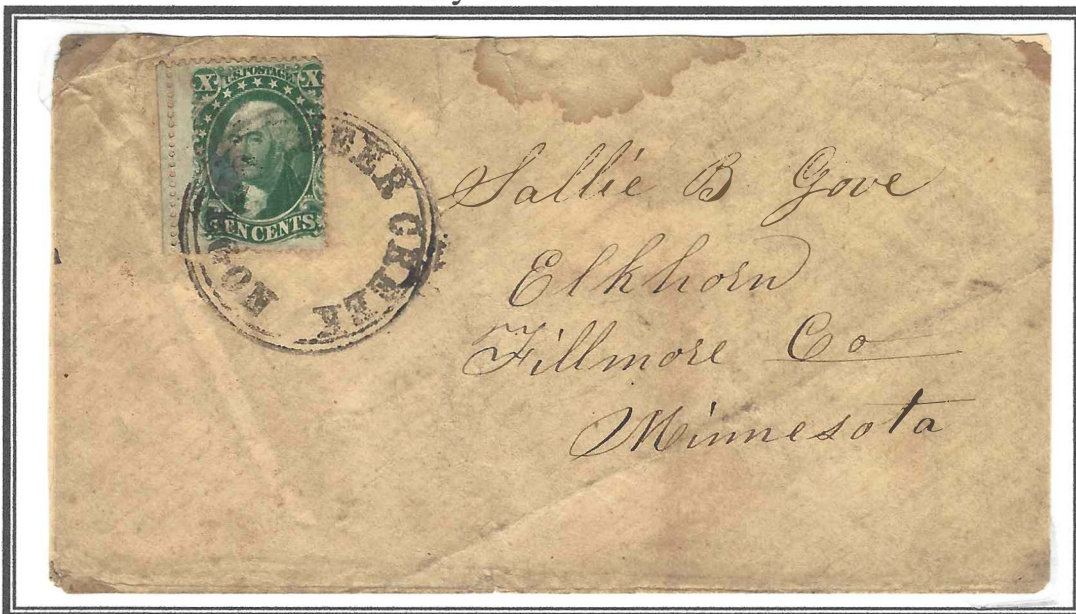 X U.S. POSTAGE X
TEN CENTS
EER CREEK
Sallie B Gove
Elkhorn
Fillmore Co
Minnesota